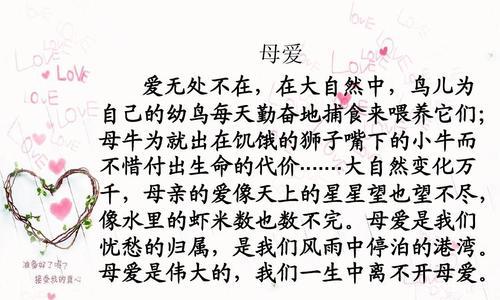 母爱
爱无处不在，在大自然中，鸟儿为
自己的幼鸟每天勤奋地捕食来喂养它们；
母牛为就出在饥饿的狮子嘴下的小牛而
不惜付出生命的代价.......大自然变化万
千，母亲的爱像天上的星星望也望不尽，
像水里的虾米数也数不完。母爱是我们
忧愁的归属，是我们风雨中停泊的港湾。
母爱是伟大的，我们一生中离不开母爱。
LOVE
LOVE
LOVE
准备好了吗？
接受我的真心